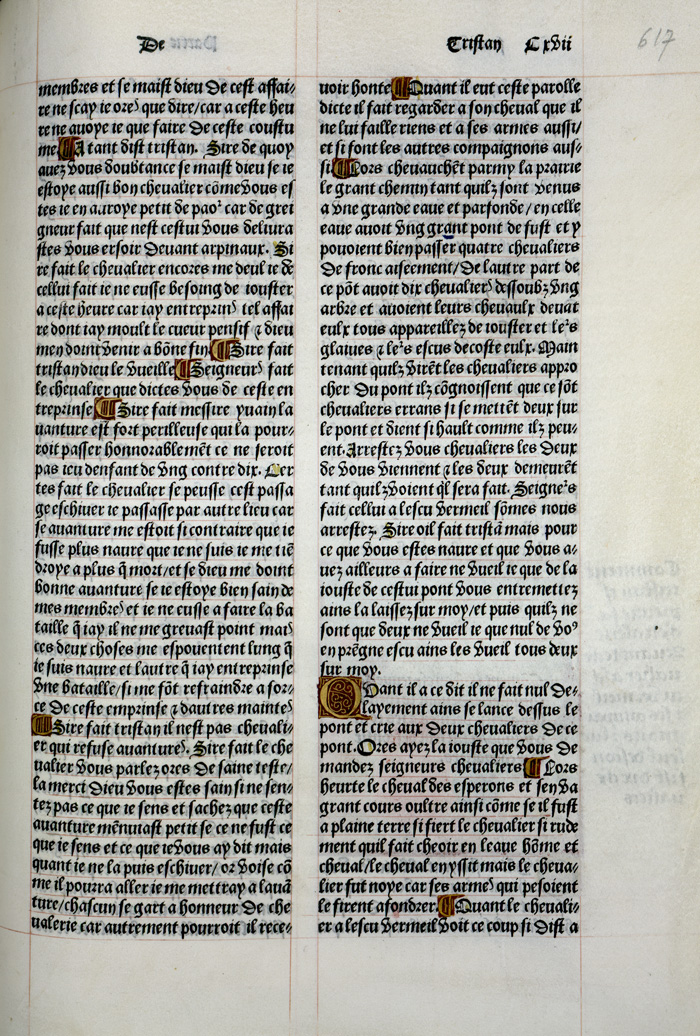 De
Tristan Cxvii
617
membres et se maist dieu de cest affai/
re ne scay ie ores que dire/car a ceste heu
re ne auoye ie que faire de ceste coustu
me ¶A tant dist tristan. Sire de quoy
auez vous doubtance se maist dieu se ie
estoye aussi bon cheualier cõme vous es
tes ie en auroye petit de paor car de grei
gneur fait que nest cestui vous deliura
stes vous ersoir deuant arpinaux. Si
re fait le cheualier encores me deul ie de
cellui fait ie ne eusse besoing de iouster
a ceste heure car iay entreprins tel affai
re dont iay moult le cueur pensif ⁊ dieu
men doint venir a bõne fin ¶Sire fait
tristan dieu le vueille ¶Seigneurs fait
le cheualier que dictes vous de ceste en
treprinse ¶Sire fait messire yuain la
uanture est fort perilleuse qui la pour/
roit passer honnorablemẽt ce ne seroit
pas ieu denfant de vng contre dix. Cer
tes fait le cheualier se peusse cest passa
ge eschiuer ie passasse par autre lieu car
se auanture me estoit si contraire que ie
fusse plus naure que ie ne suis ie me tiẽ
droye a plus q̃ mort/et se dieu me doint
bonne auanture se ie estoye bien sain de
mes membres et ie ne eusse a faire la ba
taille q̃ iay il ne me greuast point mais
ces deux choses me espouentent lung q̃
ie suis naure et lautre q̃ iay entreprinse
vne bataille/si me fõt refraindre a for/
ce de ceste emprinse ⁊ dautres maintes
¶Sire fait tristan il nest pas cheuali/
er qui refuse auantures. Sire fait le che
ualier vous parlez ores de saine teste/
la merci dieu vous estes sain si ne sen/
tez pas ce que ie sens et sachez que ceste
auanture mẽnuiast petit se ce ne fust ce
que ie sens et ce que ie vous ay dit mais
quant ie ne la puis eschiuer/ or voise cõ
me il pourra aller ie me mettray a lauã
ture/chascun se gart a honneur de che
ualerie car autrement pourroit il rece/
uoir honte ¶Quant il eut ceste parolle
dicte il fait regarder a son cheual que il
ne lui faille riens et a ses armes aussi/
et si font les autres compaignons aus/
si ¶Lors cheuauchẽt parmy la prairie
le grant chemin tant quilz sont venus
a vne grande eaue et parfonde/en celle
eaue auoit vng grant pont de fust et y
pouoient bien passer quatre cheualiers
de fronc aiseement/de lautre part de
ce põt auoit dix cheualiers dessoubz vng
arbre et auoient leurs cheuaulx deuãt
eulx tous appareillez de iouster et lers
glaiues ⁊ lers escus decoste eulx. Main
tenant quilz virẽt les cheualiers appro
cher du pont ilz cõgnoissent que ce sõt
cheualiers errans si se mettẽt deux sur
le pont et dient si hault comme ilz peu/
ent. Arrestez vous cheualiers les deux
de vous viennent ⁊ les deux demeurẽt
tant quilz voient q̃l sera fait. Seigners
fait cellui a lescu vermeil sõmes nous
arrestez. Sire oil fait tristã mais pour
ce que vous estes naure et que vous a/
uez ailleurs a faire ne vueil ie que de la
iouste de cestui pont vous entremettez
ains la laissez sur moy/et puis quilz ne
sont que deux ne vueil ie que nul de vos
en prẽgne escu ains les vueil tous deux
sur moy.
Quant il a ce dit il ne fait nul de/
layement ains se lance dessus le
pont et crie aux deux cheualiers de ce
pont. Ores ayez la iouste que vous de
mandez seigneurs cheualiers ¶Lors
heurte le cheual des esperons et sen va
grant cours oultre ainsi cõme se il fust
a plaine terre si fiert le cheualier si rude
ment quil fait cheoir en leaue hõme et
cheual/le cheual en yssit mais le cheua/
lier fut noye car ses armes qui pesoient
le firent afondrer. ¶Quant le cheuali/
er a lescu vermeil voit ce coup si dist a